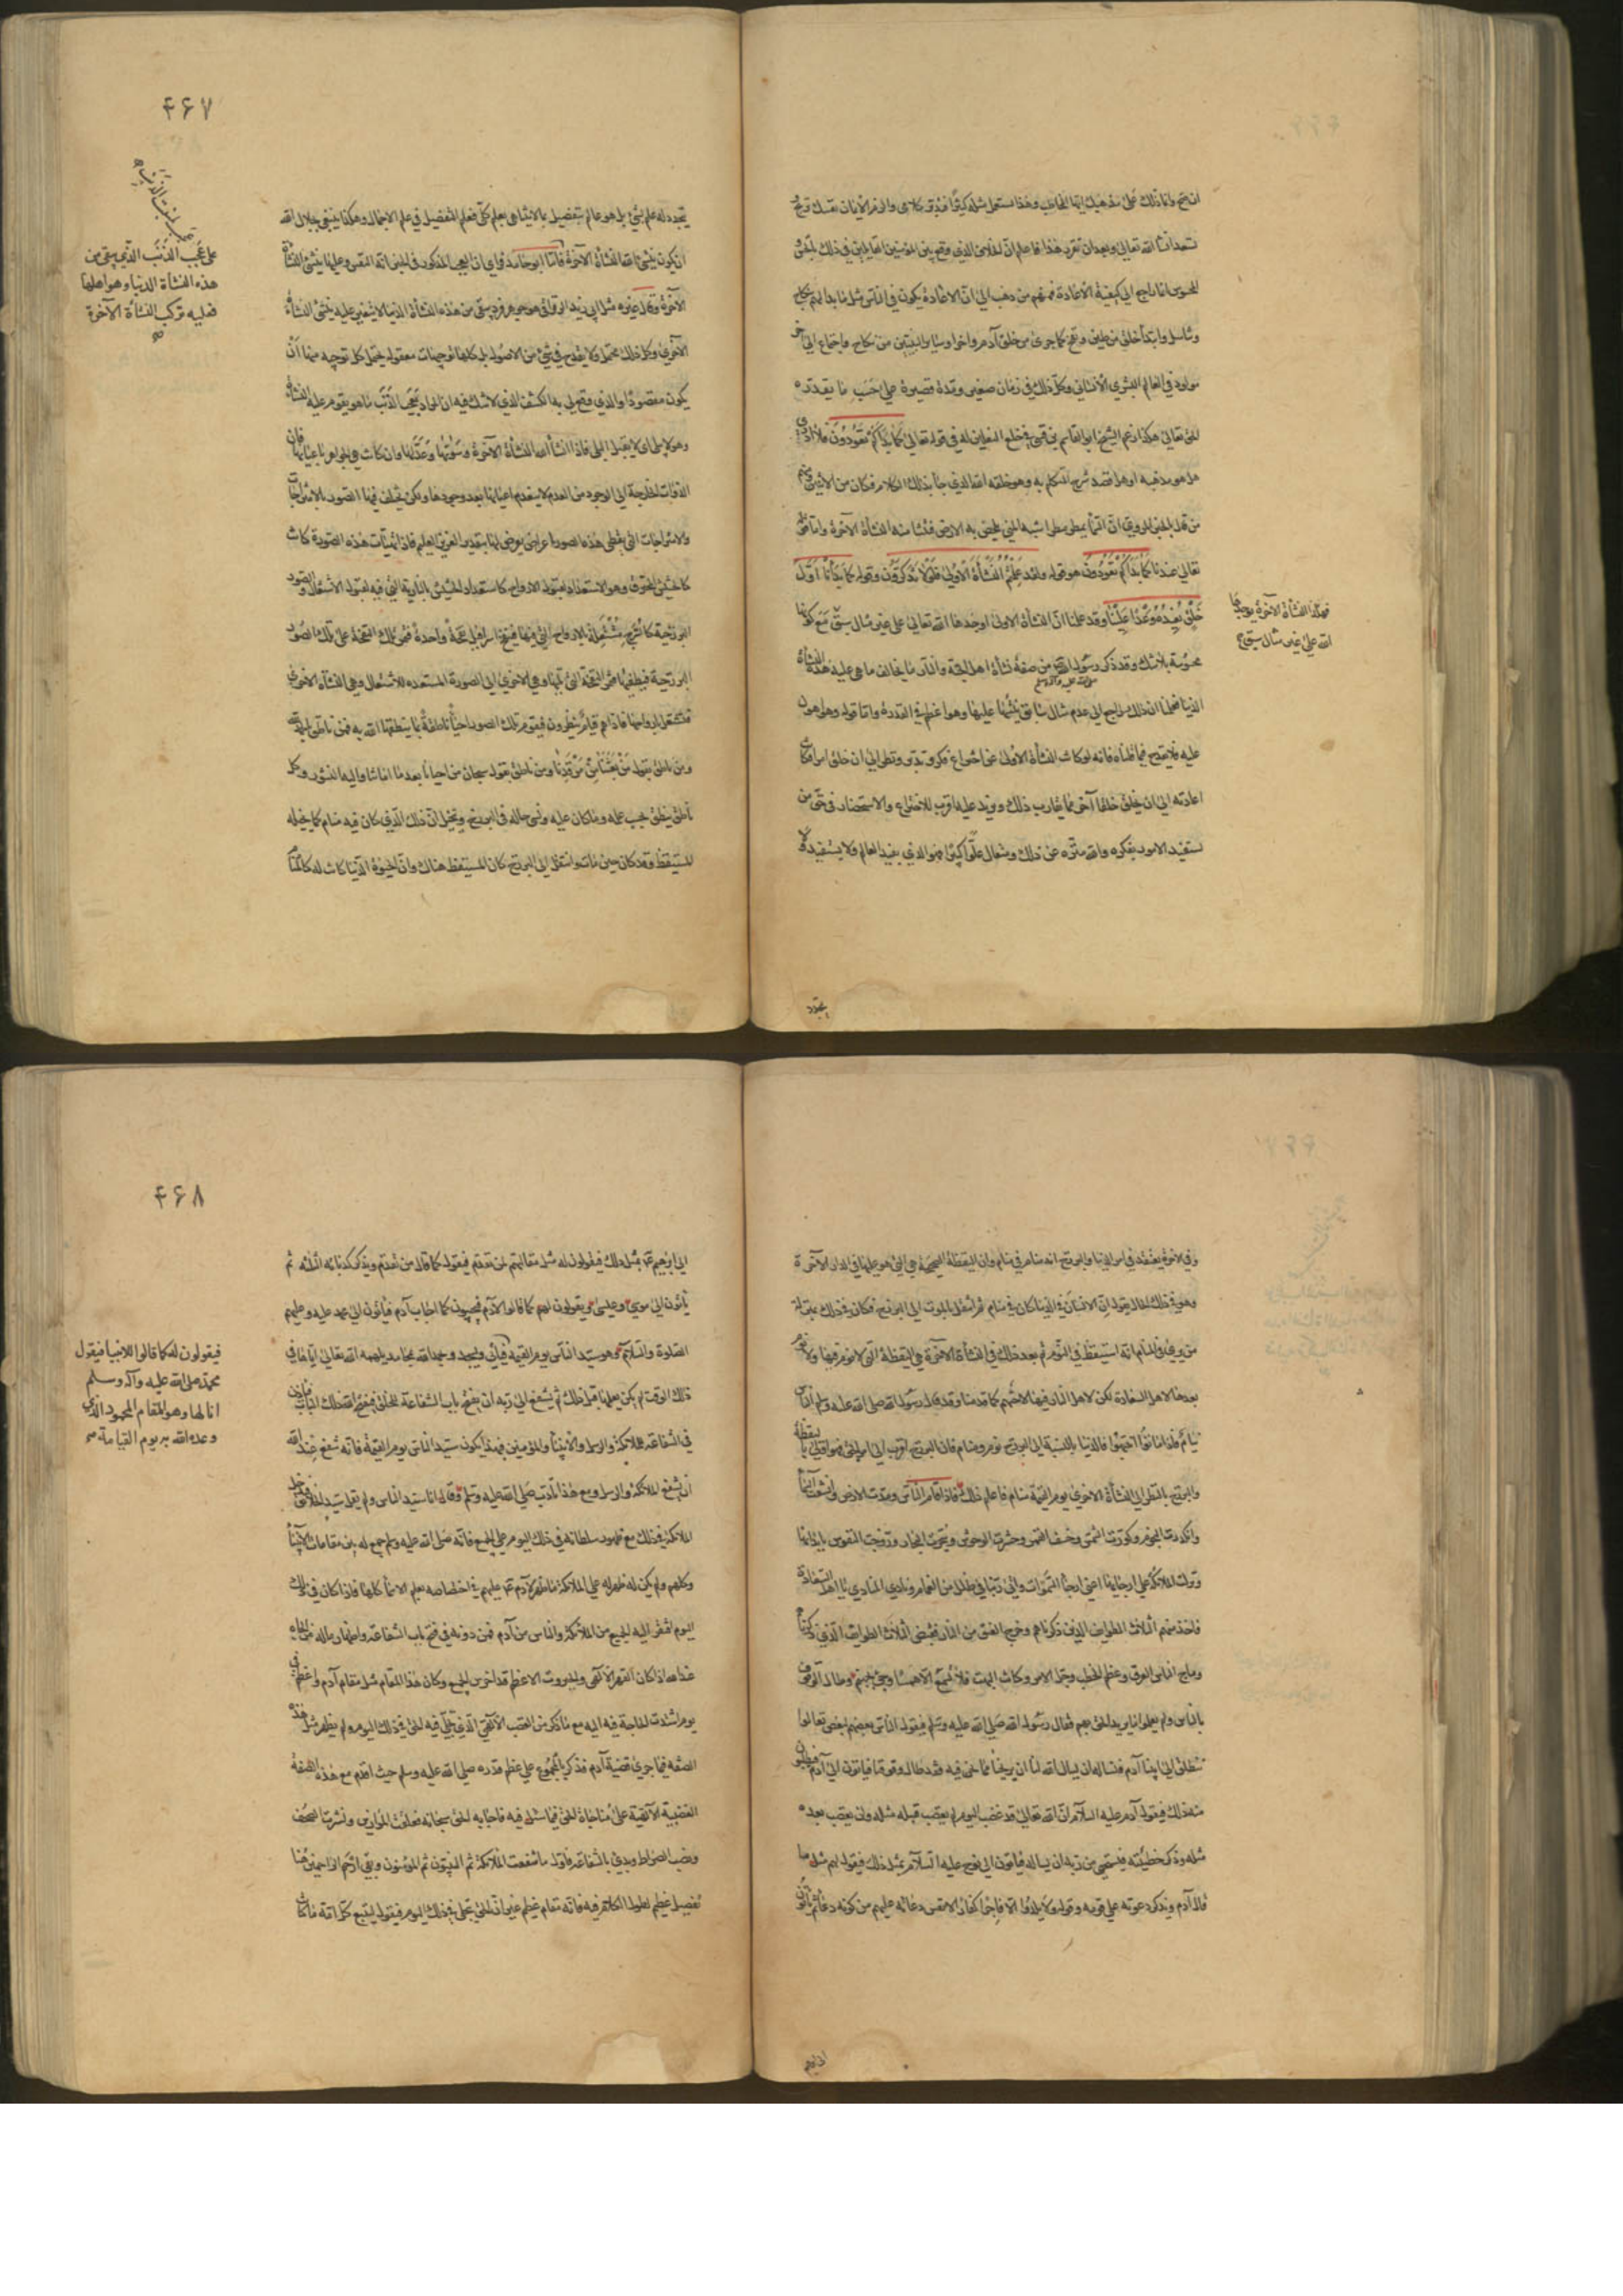 ان يحتج وانا ذلك على مذهبك ايها المخاطب وهذا مستعمل مثله كثيرا فتدبر كلامى والزم الايمان نفسك تربح
تسعد ان شاء الله تعالى وبعد ان تقرر هذا فاعلم ان الخلاف الذى وقع بين المؤمنين القائلين فى ذلك بالحشر
المحسوس انما راجع الى كيفية الاعادة فمنهم من ذهب الى ان الاعادة يكون فى الناس مثل ما بداهم بنكاح
وتناسل وابتدأ خلق من طين ونفخ كما جرى من خلق آدم وحوا وساير البنين من نكاح واجتماع الى آخر
مولود فى العالم البشرى الانسانى وكل ذلك فى زمان صغير ومدة قصيرة على حسب ما يقدره
الحق تعالى هكذا زعم الشيخ ابو القاسم بن قسى فى خلع النعلين له فى قوله تعالى كَمَا بَدَأَكُمْ تَعُودُونَ فلا ادرى
هل هو مذهبه او هل قصد شرح المتكلم به وهو خلف الله الذى جاء بذلك الكلام فكان من الاميين ومنهم
من قال بالخبر المروى ان السماء يمطر مطرا شبه المنى يمخض به الارض فتنشا منه النشأة الآخرة واما قوله
تعالى عندنا كَمَا بَدَأَكُمْ تَعُودُونَ هو قوله ولقد عَلِمْتُمُ النَّشْأَةَ الأُولَى فَلَوْلا تَذَكَّرُونَ وقوله كَمَا بَدَأْنَا أَوَّلَ
خَلْقٍ نُعِيدُهُ وَعْدًا عَلَيْنَا وقد علمنا ان النشأة الاولى اوجدها الله تعالى على غير مثال سبق مع كونها
فهكذا النشأة الآخرة يوجدها
الله على غير مثال سبق
محسوسة بلا شك وقد ذكر رسول الله من صفة نشأة اهل الجنة والنار ما يخالف ما هى عليه هذه النشأة
صلى الله عليه وآله وسلم
الدنيا فعلمنا ان ذلك راجع الى عدم مثال سابق ينشئها عليها وهو اعظم فى القدرة واما قوله وهو اهون
عليه فلا يقدح فيما قلناه فانه لو كانت النشأة الاولى عن اختراع فكر وتدبر ونظر الى ان خلق امرا فكانت
اعادته الى ان يخلق خلقا آخر مما يقارب ذلك ويزيد عليه اقرب للاختراع والاستحضار فى حق من
يستفيد الامور بفكره والله منزه عن ذلك ومتعال علوا كبيرا فهو الذى يفيد العالم ولا يستفيد ولا
يتجدد
۴۶۷
يتجدد له علم بشئ بل هو عالم بتفصيل ما لا يتناهى بعلم كلى فعلم التفصيل فى علم الاجمال وهكذا ينبغى لجلال الله
ان يكون ينشئ الله النشأة الآخرة فاما ابو حامد فراى ان العجب المذكور فى الخبر انه النفس وعليها ينشئ النشأة
على عجب الذنب الذى يبقى من
هذه النشأة الدنيا وهو اصلها
فعليه تركب النشأة الآخرة
الآخرة وقال غيره مثل ابى زيد الرقراقى هو جوهر فرد يبقى من هذه النشأة الدنيا لا يتغير عليه ينشئ النشأة
الاخرى وكل ذلك محتمل ولا يقدح فى شئ من الاصول بل كلها توجيهات معقوله يحتمل كل توجيه منها ان
يكون مقصودا والذى وقع لى به الكشف الذى لا شك فيه ان المراد بعجب الذنب ما هو يقوم عليه النشأة
وهو لا يبلى اى لا يقبل البلى فاذا انشأ الله النشأة الآخرة وسويها وعدلها وان كانت هى الجواهر باعيانها فان
الذوات الخارجة الى الوجود من العدم لا ينعدم اعيانها بعد وجودها ولكن يختلف فيها الصور بالامتزاجات
والامتزاجات التى يعطى هذه الصور اعراض يعرض لها بتقدير العزيز العليم فاذا تهيأت هذه الصورة كانت
كالحشيش المحرق وهو الاستعداد لقبول الارواح كاستعداد الحشيش بالنارية التى فيه لقبول الاشتعال والصور
البرزخية كالسرج مشتعلة بالارواح التى فيها فينفخ اسرافيل نفخة واحدة فتمر تلك النفخة على تلك الصور
البرزخية فيطفيها وتمر النفخة التى تليها وهى الاخرى الى الصورة المستعده للاشتعال وهى النشأة الاخرى
فتشتعل بارواحها فاذا هم قيام ينظرون فيقوم تلك الصور احيأ ناطقة بما ينطقها الله به فمن ناطق بالحمد لله
ومن ناطق بقول مَنْ بَعَثَنَا مِنْ مَرْقَدِنَا ومن ناطق بقول سبحان من احيانا بعد ما اماتنا واليه النشور وكل
ناطق ينطق بحسب علمه وما كان عليه ونسى حاله فى البرزخ ويتخيل ان ذلك الذى كان فيه منام كما يخيله
المستيقظ وقد كان حين مات وانتقل الى البرزخ كان كالمستيقظ هناك وان الحيوة الدنيا كانت له كالمنام
وفى الاخرة يعتقد فى امر الدنيا والبرزخ انه منام فى منام وان اليقظة الصحيحة هى التى هو عليها فى الدار الآخرة
وهو فى ذلك الحال يقول ان الانسان فى الدنيا كان فى منام ثم انتقل بالموت الى البرزخ فكان فى ذلك بمنزلة
من يرى فى المنام انه استيقظ فى النوم ثم بعد ذلك فى النشأة الآخرة هى اليقظة التى لا نوم فيها ولا نوم
بعدها لاهل السعادة لكن لاهل النار فيها راحتهم كما قدمنا وقد قال رسول الله صلى الله عليه وسلم الناس
نيام فاذا ماتوا انتبهوا فالدنيا بالنسبة الى البرزخ نوم ومنام فان البرزخ اقرب الى امر الحق فهو اولى باليقظة
والبرزخ بالنظر الى النشأة الاخرى يوم القيمة منام فاعلم ذلك فاذا قام الناس ومدت الارض وانشقت السمأ
وانكدرت النجوم وكورت الشمس وخسف القمر وحشرت الوحوش وسجرت البحار وزوجت النفوس بابدانها
ونزلت الملائكة على ارجايها اعنى ارجأ السموات واتى ربنا فى ظلل من الغمام ونادى المنادى يا اهل السعادة
فاخذ منهم الثلاث الطوايف الذين ذكرناهم وخرج العنق من النار فقبض الثلاث الطوايف الذين ذكرنا
وماج الناس العرق وعظم الخطب وجل الامر وكان البهت فلا تسمع الا همسا وجئ بجهنم وطال الوقوف
بالناس ولم يعلموا ما يريد الحق بهم فقال رسول الله صلى الله عليه وسلم فيقول الناس بعضهم لبعض تعالوا
ننطلق الى ابينا آدم فنساله ان يسال الله لنا ان يريحنا مما نحن فيه فقد طال وقوفنا فياتون الى آدم فيطلبون
منه ذلك فيقول آدم عليه السلام ان الله تعالى قد غضب اليوم لم يغضب قبله مثله ولن يغضب بعده
مثله وذكر خطيئته فيستحيى من ربه ان يساله فياتون الى نوح عليه السلام بمثل ذلك فيقول لهم مثل ما
قال آدم ويذكر دعوته على قومه وقوله ولا يلدوا الا فاجرا كفارا لا نفس دعائه عليهم من كونه دعأ ثم ياتون
۴۶۸
الى ابرهيم بمثل ذلك فيقولون له مثل مقالتهم لمن تقدم فيقول كما قال من تقدم ويذكر كذباته الثلثه ثم
ياتون الى موسى وعيسى ويقولون لهم كما قالوا لآدم فيجيبون كما اجاب آدم فيأتون الى محمد عليه وعليهم
الصلوة والسلام وهو سيد الناس يوم القيمة فيأتى ويسجد ويحمد الله بمحامد يلهمه الله تعالى اياها فى
فيقولون له كما قالوا للانبيا فيقول
محمد صلى الله عليه وآله وسلم
انا لها وهو المقام المحمود الذى
وعده الله به يوم القيامة
ذلك الوقت لم يكن يعلمها قبل ذلك ثم يشفع الى ربه ان يفتح باب الشفاعة للخلق فيفتح الله ذلك الباب فياذن
فى الشفاعة للملائكة والرسل والانبيأ والمؤمنين فبهذا يكون سيد الناس يوم القيمة فانه شفع عند الله
ان يشفع الملائكة والرسل ومع هذا تأدب صلى الله عليه وسلم وقال انا سيد الناس ولم يقل سيد الخلايق فيدخل
الملائكة فى ذلك مع ظهور سلطانه فى ذلك اليوم على الجميع فانه صلى الله عليه وسلم جمع له بين مقامات الانبيأ
وكلهم ولم يكن له ظهر له على الملائكة ما ظهر لآدم عليهم فى اختصاصه بعلم الاسمأ كلها فاذا كان فى ذلك
اليوم افتقر اليه الجميع من الملائكة والناس من آدم فمن دونه فى فتح باب الشفاعة واظهار ماله من الجاه
عند الله اذ كان القهر الالهى والجبروت الاعظم قد اخرس الجميع وكان هذا المقام مثل مقام آدم واعظم فى
يوم اشتدت الحاجة فيه اليه مع ما ذكر من الغضب الالهى الذى تجلى فيه الحق فى ذلك اليوم ولم يظهر مثل هذه
الصفه فيما جرى قضية آدم فذكر بالمجموع على عظم قدره صلى الله عليه وسلم حيث اقدم مع هذه الصفة
الغضبية الالهية على مناجاة الحق فيما سئل فيه فاجابه الحق سبحانه فعلقت الموازين ونشرت الصحف
ونصب الصراط وبدئ بالشفاعة فاول ما شفعت الملائكة ثم النبيون ثم المؤمنون وبقى ارحم الراحمين وهنا
تفصيل عظيم لطول الكلام فيه فانه مقام عظيم غير ان الحق يتجلى فى ذلك اليوم فيقول ليتبع كل امة ما كانت